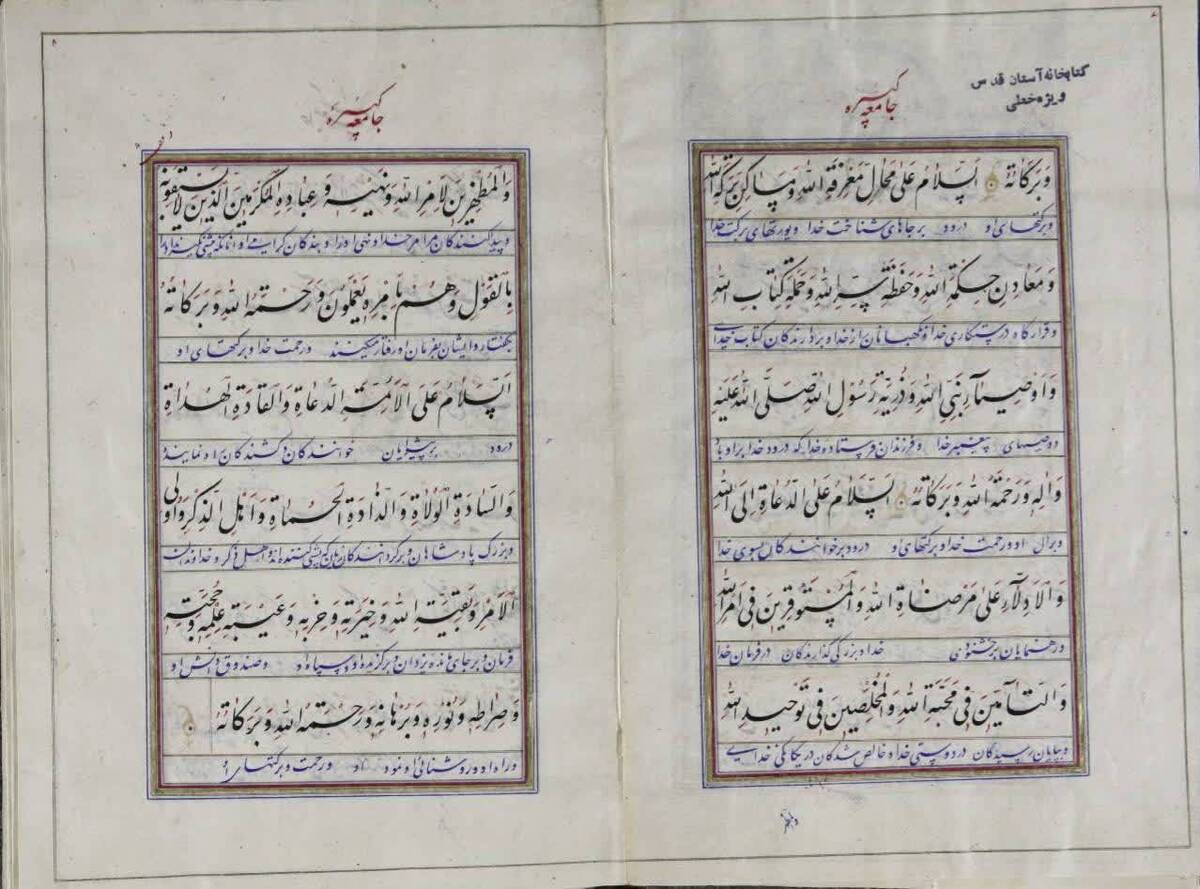 کتابخانه آستان قدس
ویژه خطی
جامعه کبیره
وَبَرَکاتُهُ اَلسَّلامُ عَلی مَحالِّ مَعْرِفَةِ اللهِ وَمَساکِنِ بَرَکَةِ اللهِ
وبرکتهای او درود بر جاهای شناخت خدا ویورتهای برکت خدا
وَمَعادِنِ حِکْمَةِ اللهِ وَحَفَظَةِ سِرِّ اللهِ وَحَمَلَةِ کِتابِ اللهِ
وقرارگاه درستکاری خدا ونگهبانان راز خدا وبردارندگان کتاب خدای
وَاَوْصِیآءِ نَبِیِّ اللهِ وَذُرِّیَّةِ رَسُولِ اللهِ صَلَّی اللهُ عَلَیْهِ
ووصیهای پیغمبر خدا وفرزندان فرستاده خدا که درود خدا بر او باد
وَالِهِ وَرَحْمَةُ اللهِ وَبَرَکاتُهُ اَلسَّلامُ عَلَی الدُّعاةِ اِلَی اللهِ
وبرال او ورحمت خدا وبرکتهای او درود برخوانندگان بسوی خدا
وَالْاَدِلّآءِ عَلی مَرْضاةِ اللهِ وَالْمُسْتَوْفِرینَ فی اَمْرِ اللهِ
ورهنمایان برخشنودی خدا وبزرگی گذارندگان در فرمان خدا
وَالتّآمّینَ فی مَحَبَّةِ اللهِ وَالْمُخْلِصینَ فی تَوْحیدِ اللهِ
وبپایان رسیدگان در دوستی خدا وخالص شدگان در یگانگی خدای
جامعه کبیره
وَالْمُظْهِرینَ لِاَمْرِ اللهِ وَنَهْیِهِ وَعِبادِهِ الْمُکْرَمینَ الَّذینَ لایَسْبِقُونَهُ
وپیدا کنندگان مر امر خدا ونهی او را وبندگان گرامی او انانکه پیشی نگیرند او را
بِالْقَوْلِ وَهُمْ بِاَمْرِهِ یَعْمَلُونَ وَرَحْمَةُ اللهِ وَبَرَکاتُهُ
بگفتار وایشان بفرمان او رفتار میکنند ورحمت خدا وبرکتهای او
اَلسَّلامُ عَلَی الْاَئِمَّةِ الدُّعاةِ وَالْقادَةِ الْهُداةِ
درود بر پیشوایان خوانندگان وکشندگان راه نمایند
وَالسّادَةِ الْوُلاةِ وَالذّادَةِ الْحُماةِ وَاَهْلِ الذِّکْرِ وَاُولِی
وبزرگ پادشاهان وبرگردانندگان واهل ذکر وخداوندان
الْاَمْرِ وَبَقِیَّةِ اللهِ وَخِیَرَتِهِ وَحِزْبِهِ وَعَیْبَةِ عِلْمِهِ وَحُجَّتِهِ
فرمان وبرجای مانده یزدان وبرگزیده او وسپاه او وصندوق دانش او
وَصِراطِهِ وَنُورِهِ وَبُرْهانِهِ وَرَحْمَةُ اللهِ وَبَرَکاتُهُ
وراه او وروشنائی او ورحمت وبرکتهای او